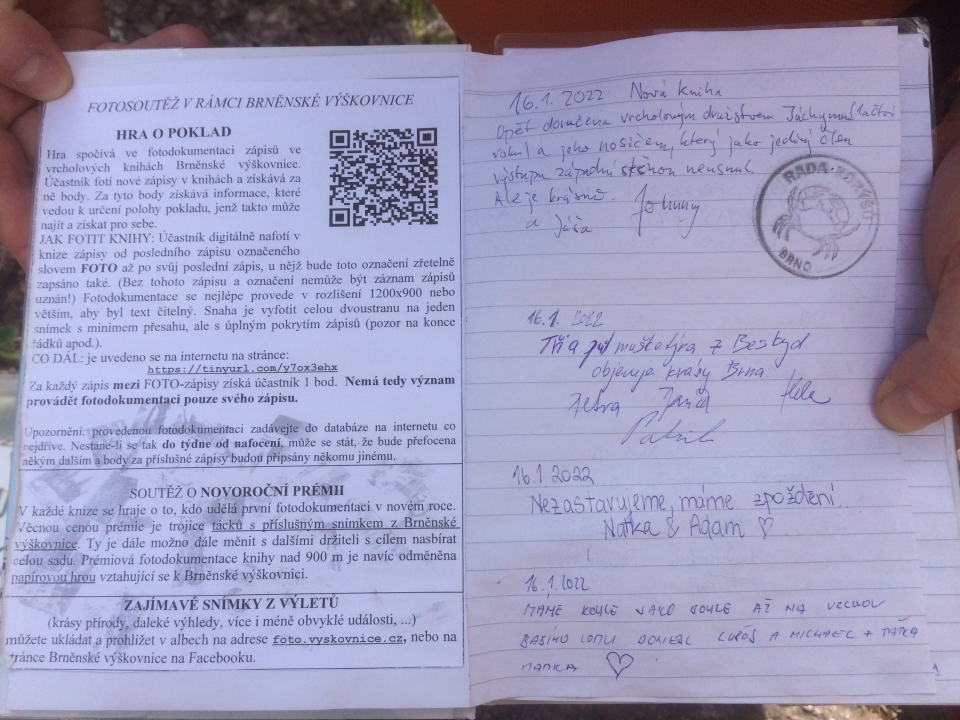 FOTOSOUTĚŽ V RÁMCI BRNĚNSKÉ VÝŠKOVNICE
HRA O POKLAD
Hra spočívá ve fotodokumentaci zápisů ve
vrcholových knihách Brněnské výškovnice.
Účastník fotí nové zápisy v knihách a získává za
ně body. Za tyto body získává informace, které
vedou k určení polohy pokladu, jenž takto může
najít a získat pro sebe.
JAK FOTIT KNIHY: Účastník digitálně nafotí v
knize zápisy od posledního zápisu označeného
slovem FOTO až po svůj poslední zápis, u nějž bude toto označení zřetelně
zapsáno také. (Bez tohoto zápisu a označení nemůže být záznam zápisů
uznán!) Fotodokumentace se nejlépe provede v rozlišení 1200x900 nebo
větším, aby byl text čitelný. Snaha je vyfotit celou dvoustranu na jeden
snímek s minimem přesahu, ale s úplným pokrytím zápisů (pozor na konce
řádků apod.).
CO DÁL: je uvedeno se na internetu na stránce:
https://tinyurl.com/y7ox3ehx
Za každý zápis mezi FOTO-zápisy získá účastník 1 bod. Nemá tedy význam
provádět fotodokumentaci pouze svého zápisu.
Upozornění: provedenou fotodokumentaci zadávejte do databáze na internetu co
nejdříve. Nestane-li se tak do týdne od nafocení, může se stát, že bude přefocena
někým dalším a body za příslušné zápisy budou připsány někomu jinému.
SOUTĚŽ O NOVOROČNÍ PRÉMII
V každé knize se hraje o to, kdo udělá první fotodokumentaci v novém roce.
Věcnou cenou prémie je trojice tácků s příslušným snímkem z Brněnské
výškovnice. Ty je dále možno dále měnit s dalšími držiteli s cílem nasbírat
celou sadu. Prémiová fotodokumentace knihy nad 900 m je navíc odměněna
papírovou hrou vztahující se k Brněnské výškovnici.
ZAJÍMAVÉ SNÍMKY Z VÝLETŮ
(krásy přírody, daleké výhledy, více i méně obvyklé události, ...)
můžete ukládat a prohlížet v albech na adrese foto.vyskovnice.cz, nebo na
stránce Brněnské výškovnice na Facebooku.
16.1. 2022 Nová kniha
Opět doručena vrcholovým družstvem Jáchyma
a jeho nosičem, který jako jediný člen
výstupu západní stěnou neusnul
Ale je krásně. Johnny
a Jáša
RADA KORÝŠŮ
BRNO
16.1. 2022
Tři a půl mušketýra z Beskyd
objevuje krásy Brna
Petra
Patrik
16.1 2022
Nezastavujeme, máme zpoždění...
Natka & Adam ♡
16.1.2022
MÁME KOHLE JAKO KOHLE AŽ NA VRCHOL
LUBOŠ A MICHAEL + TAŤKA
MAMKA ♡